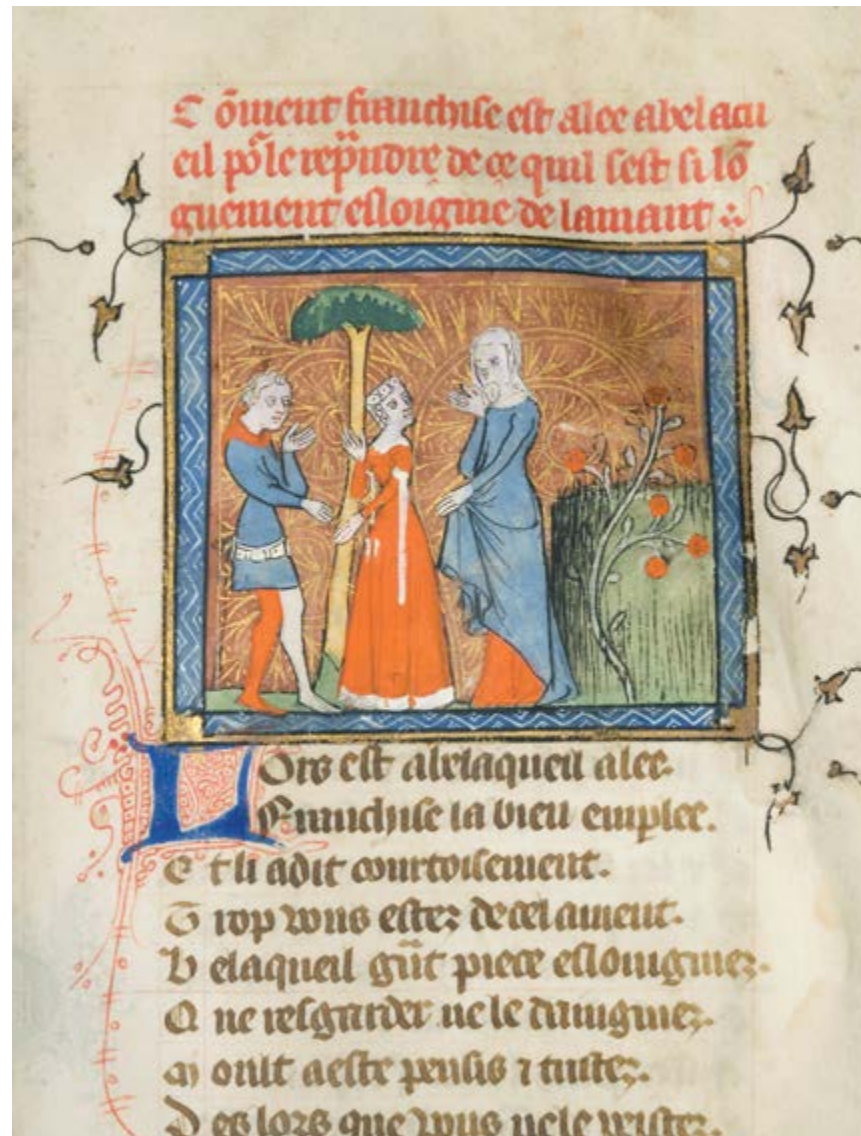 Cōment franchise est alee abelacu
eil po᷑ le rep̄ndre de ce quil sest si lō
guement esloignie de lamant
Lors est abelaqueil alee.
Franchise la bien emplee.
Et li a dit courtoisement.
Trop vous estez decel ament.
Belaqueil gn̄t piece eslongniez.
Que resgarder ne le daingniez.
Moult a este pensis ⁊ tristez.
Des lors que vous ne le veistez.